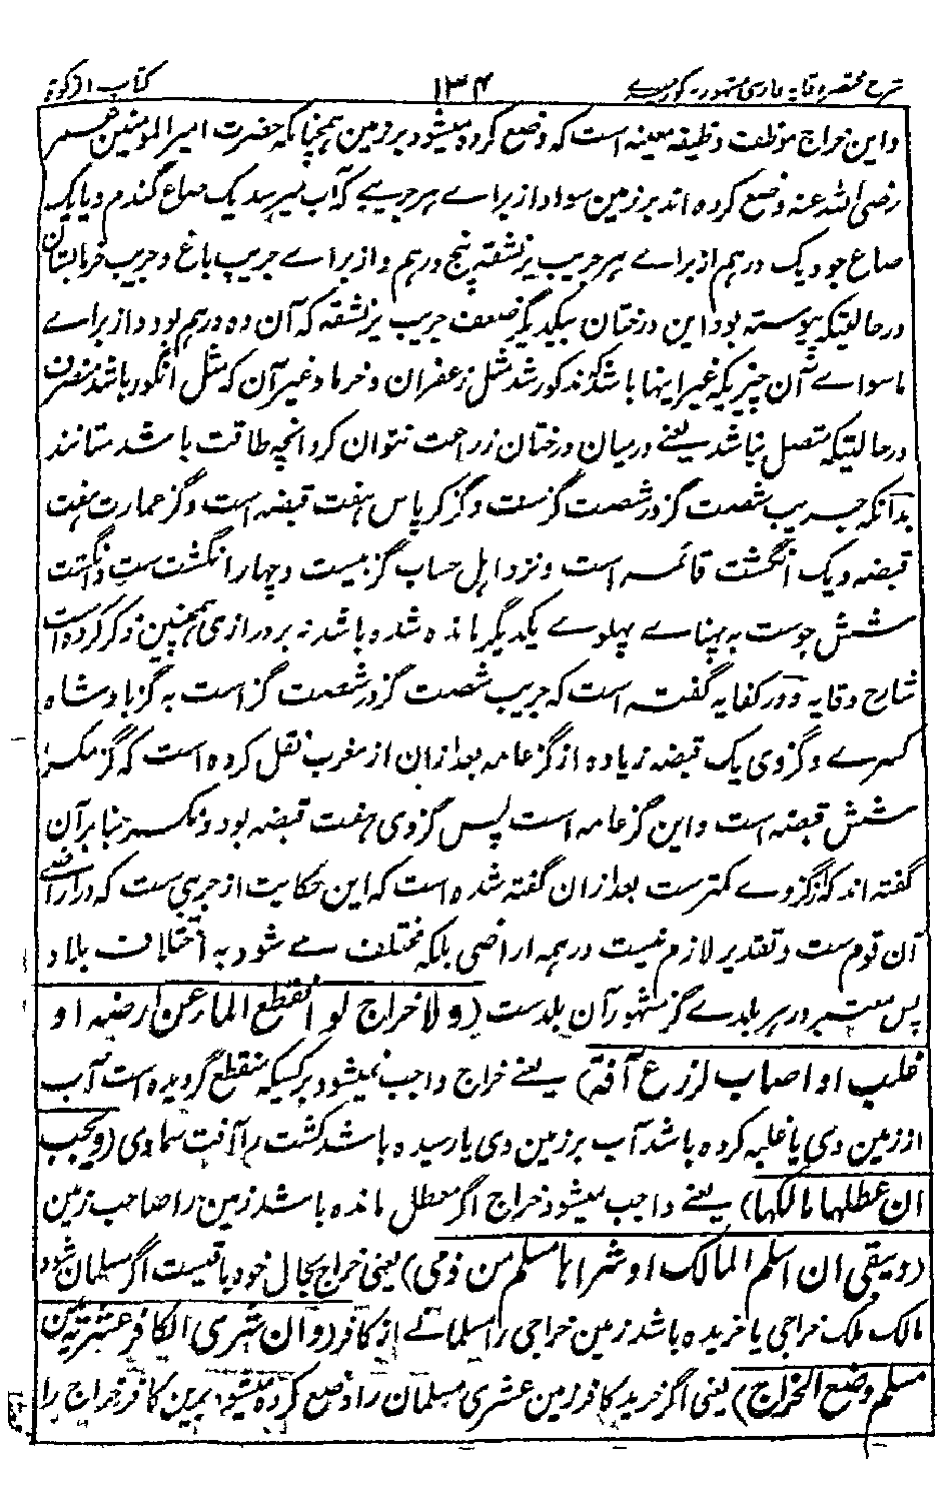 شرح مختصر وقایہ فارسی مشہور بہ کورمیری ۱۳۴ کتاب الزکوة
و این خراج موظف وظیفہ معینہ است کہ وضع کرده میشود بر زمین ہمچنانکہ حضرت امیر المومنین عمر
رضی اللہ عنہ وضع کرده اند بر زمین سواد از براے ہر جریبے کہ آب میرسد یک صاع گندم و یا یک
صاع جو و یک درہم از براے ہر جریب پر نشقہ پنج درہم و از براے جریب باغ و جریب خرماستان
در حالیتکہ پیوستہ بود این درختان بیکدیگر ضعف جریب پر نشقہ کہ آن ده درہم بود و از براے
ماسواے آن چیزیکہ غیر اینہا باشد مذکور شد مثل زعفران و خرما و غیر آن کہ مثل انگور باشد متفرق
در حالیتکہ متصل نباشد یعنے درمیان درختان زراعت نتوان کرد انچہ طاقت باشد ستانند
بدانکہ جریب شصت گز در شصت گز ست و گز کرپاس ہفت قبضہ است و گز عمارت ہفت
قبضہ و یک انگشت قائمہ است و نزد اہل حساب گز بیست و چہار انگشت ست و انگشت
شش جوست بہ پہناے پہلوے یکدیگر مانده شده باشد نہ بر درازی ہمچنین ذکر کرده است
شارح وقایہ و در کفایہ گفتہ است کہ جریب شصت گز در شصت گز است بہ گز بادشاه
کسرے و گز وی یک قبضہ زیاده از گز عامہ بعد ازان از مغرب نقل کرده است کہ گز مکسر
شش قبضہ است و این گز عامہ است پس گز وی ہفت قبضہ بود و مکسر بنا بر آن
گفتہ اند کہ از گز وے کمتر ست بعد ازان گفتہ شده است کہ این حکایت از جریبی ست کہ در اراضے
آن قوم ست و تقدیر لازم نیست در ہمہ اراضی بلکہ مختلف مے شود بہ اختلاف بلاد
پس معتبر در ہر بلدے گز مشہور آن بلدست (ولا خراج لو انقطع الماء عن ارضہ او
غلب او اصاب الزرع آفة) یعنے خراج واجب نمیشود بر کسیکہ منقطع گردیده است آب
از زمین وی یا غلبہ کرده باشد آب بر زمین وی یا رسیده باشد کشت را آفت سماوی (ویجب
ان عطلہا مالکہا) یعنے واجب میشود خراج اگر معطل مانده باشد زمین را صاحب زمین
(ویبقی ان اسلم المالک او شراہا مسلم من ذمی) یعنی خراج بحال خود باقیست اگر مسلمان شود
مالک ملک خراجی یا خریده باشد زمین خراجی را مسلمانے از کافر (وان شری الکافر عشریة من
مسلم وضع الخراج) یعنی اگر خرید کافر زمین عشری مسلمان را وضع کرده میشود برین کافر خراج را